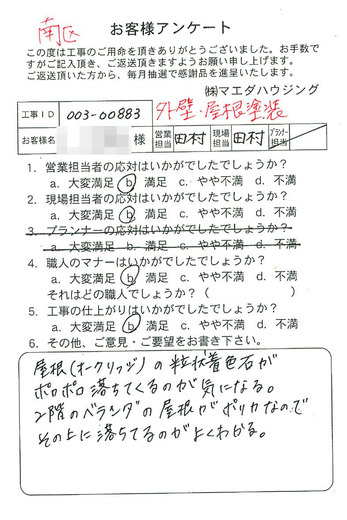 南区
お客様アンケート
この度は工事のご用命を頂きありがとうございました。お手数で
すがご記入頂き、ご返送頂きますようお願い申し上げます。
ご返送頂いた方から、毎月抽選で感謝品を進呈いたします。
㈱マエダハウジング
外壁・屋根塗装
工事ID 003-00883
お客様名 様 営業担当 田村 現場担当 田村 プランナー担当
1. 営業担当者の応対はいかがでしたでしょうか?
a. 大変満足 b. 満足 c. やや不満 d. 不満
2. 現場担当者の応対はいかがでしたでしょうか?
a. 大変満足 b. 満足 c. やや不満 d. 不満
3. プランナーの応対はいかがでしたでしょうか?
a. 大変満足 b. 満足 c. やや不満 d. 不満
4. 職人のマナーはいかがでしたでしょうか?
a. 大変満足 b. 満足 c. やや不満 d. 不満
それはどの職人でしょうか?( )
5. 工事の仕上がりはいかがでしたでしょうか?
a. 大変満足 b. 満足 c. やや不満 d. 不満
6. その他、ご意見・ご要望をお書き下さい。
屋根(オークリッジ)の粒状着色石が
ポロポロ落ちてくるのが気になる。
2階のベランダの屋根がポリカなので
その上に落ちてるのがよくわかる。